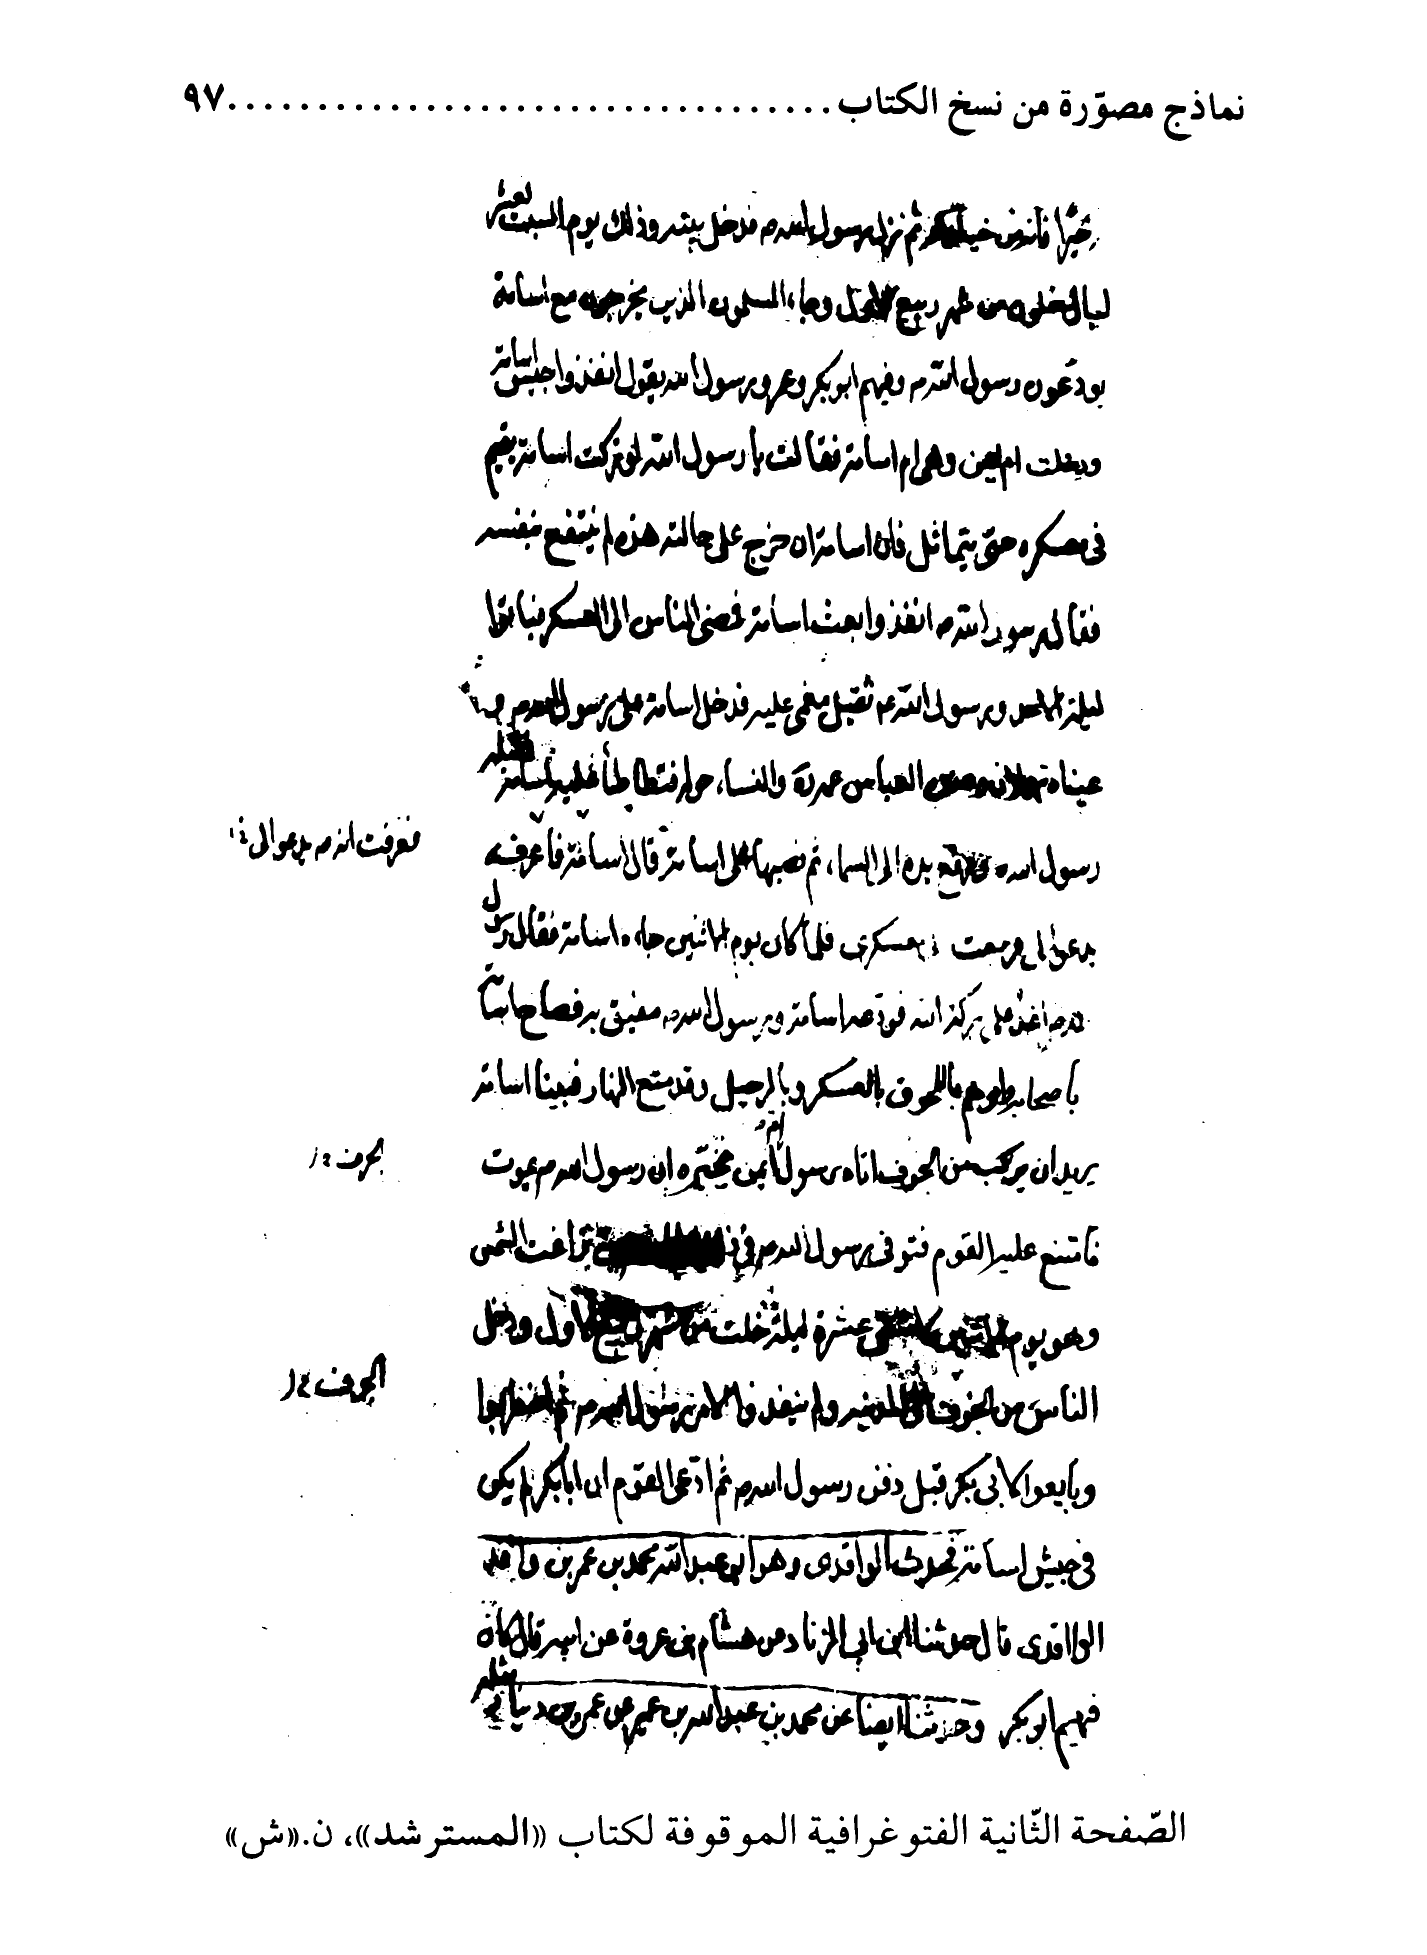 نماذج مصوّرة من نسخ الكتاب ................................. ٩٧
ثم نزل رسول الله ص فدخل بيته وذلك يوم السبت لعشر
ليال خلون من شهر ربيع الاول وجاء المسلمون الذين يخرجون مع اسامة
يودّعون رسول الله م وفيهم ابو بكر وعمر ورسول الله يقول انفذوا جيش اسامة
ودخلت ام ايمن وهى ام اسامة فقالت يا رسول الله لو تركت اسامة يقيم
فى معسكره حتى يتماثل فان اسامة ان خرج على حالته هذه لم ينتفع بنفسه
فقال رسول الله ص انفذوا بعث اسامة فمضى الناس الى العسكر فباتوا
ليلة الاحد ورسول الله ثقيل مغمى عليه فدخل اسامة على رسول الله
عيناه تهملان العباس عمه والنساء حوله فتطاطأ عليه اسامة فقبله
رسول الله يده الى السماء ثم نصبها على اسامة قال اسامة فاعرف
فعرفت انه ص يدعو الى
يدعو الى فرجعت معسكرى فلما كان يوم الاثنين جاءه اسامة فقال رسول
الله ص اغد على بركة الله فودعه اسامة ورسول الله ص مفيق فصاح اسامة
باصحابه باللحوق بالعسكر وبالرحيل وقد متع النهار فبينا اسامة
يريد ان يركب من الجرف اتاه رسول ام ايمن يخبره ان رسول الله م يموت
الجرف
فامتنع عليه القوم فتوفى رسول الله ص زاغت الشمس
وهو يوم الاثنين عشرة ليلة خلت من شهر ربيع الاول ودخل
الناس من الجرف الى المدينة ولم ينفذوا لامر رسول الله ص ثم
الجرف
وبايعوا لابى بكر قبل دفن رسول الله م ثم ادّعى القوم ان ابا بكر لم يكن
فى جيش اسامة فحدث الواقدى وهو ابو عبد الله محمد بن عمر بن واقد
الواقدى قال حدثنا ابن ابى الزناد عن هشام بن عروة عن ابيه قال كان
فهيم ابو بكر وحدثنا ايضا عن محمد بن عبد الله بن عمير عن عمرو بن دينار
الصّفحة الثّانية الفتوغرافية الموقوفة لكتاب «المسترشد»، ن.«ش»